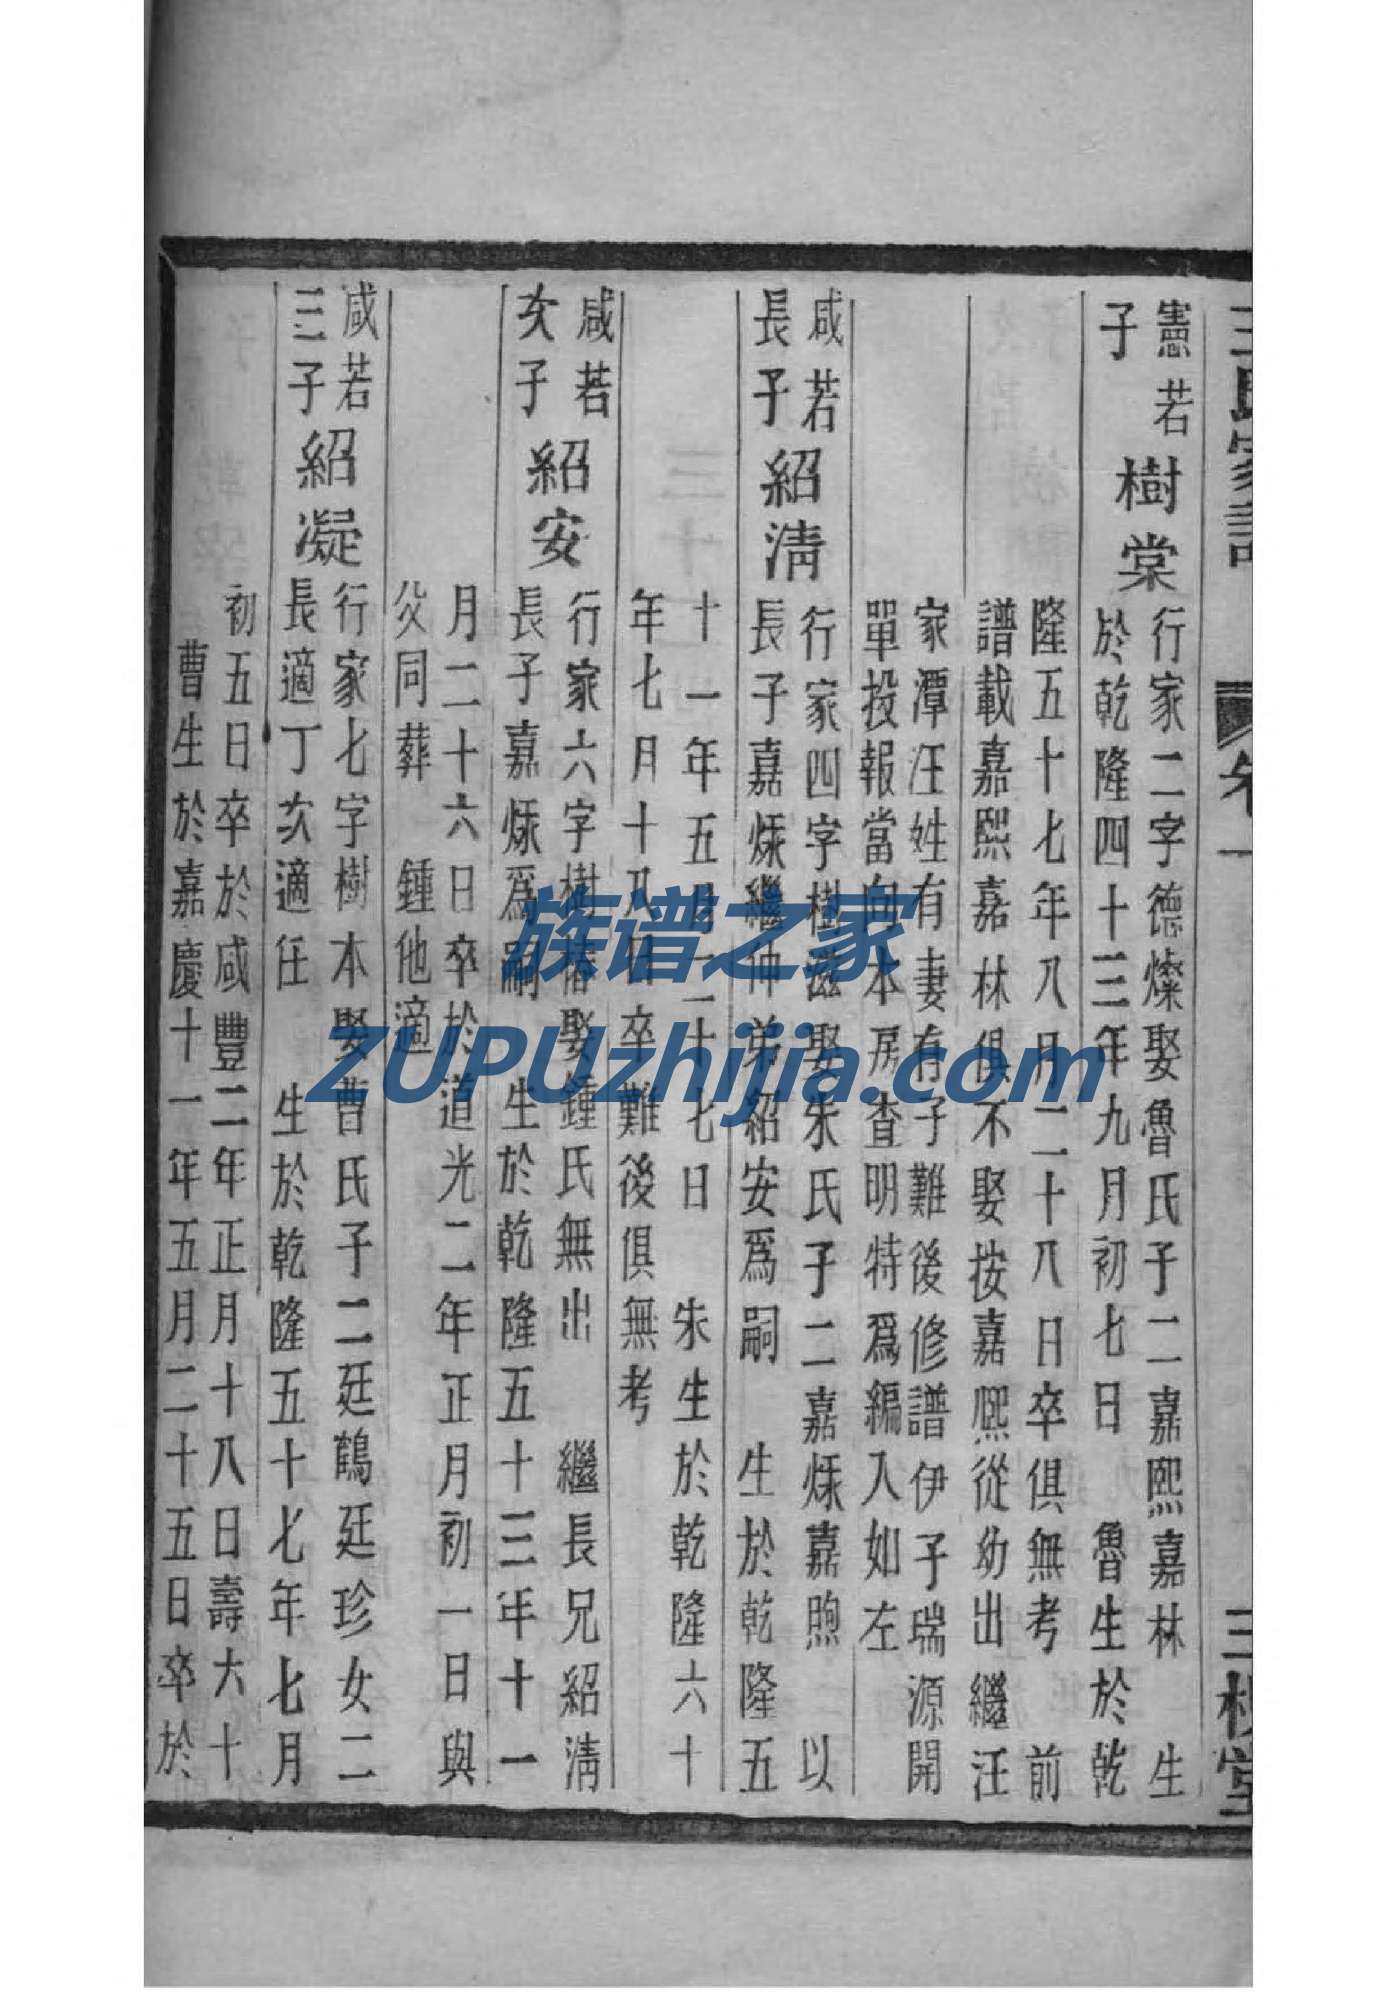 王氏家譜 卷一 三槐堂
憲若
子
樹棠
行家二字德燦娶魯氏子二嘉熙嘉林 生
於乾隆四十三年九月初七日 魯生於乾
隆五十七年八月二十八日卒俱無考 前
譜載嘉熙嘉林俱不娶按嘉熙從幼出繼汪
家潭汪姓有妻有子難後修譜伊子瑞源開
單投報當向本房查明特爲編入如左
咸若
長子
紹淸
行家四字樹滋娶朱氏子二嘉烁嘉煦 以
長子嘉烁繼仲弟紹安爲嗣 生於乾隆五
十一年五月二十七日 朱生於乾隆六十
年七月十八日卒難後俱無考
咸若
次子
紹安
行家六字樹椿娶鍾氏無出 繼長兄紹淸
長子嘉烁爲嗣 生於乾隆五十三年十一
月二十六日卒於道光二年正月初一日與
父同葬 鍾他適
咸若
三子
紹凝
行家七字樹本娶曹氏子二廷鶴廷珍女二
長適丁次適任 生於乾隆五十七年七月
初五日卒於咸豐二年正月十八日壽六十
曹生於嘉慶十一年五月二十五日卒於
族谱之家
ZUPUzhijia.com